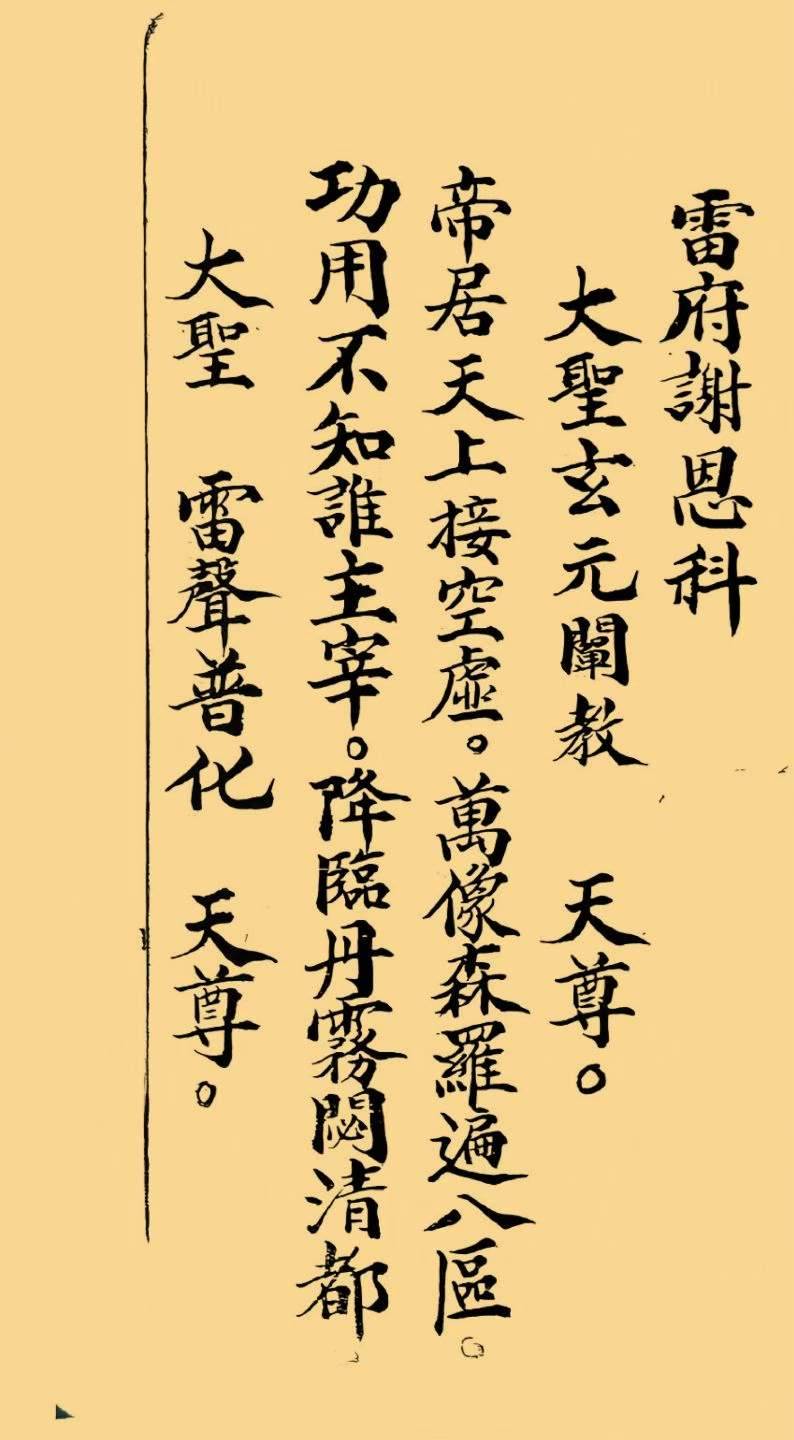 雷府謝恩科
大聖玄元闡教　天尊。
帝居天上接空虛。萬像森羅遍八區。
功用不知誰主宰。降臨丹霧閟清都
大聖　雷聲普化　天尊。